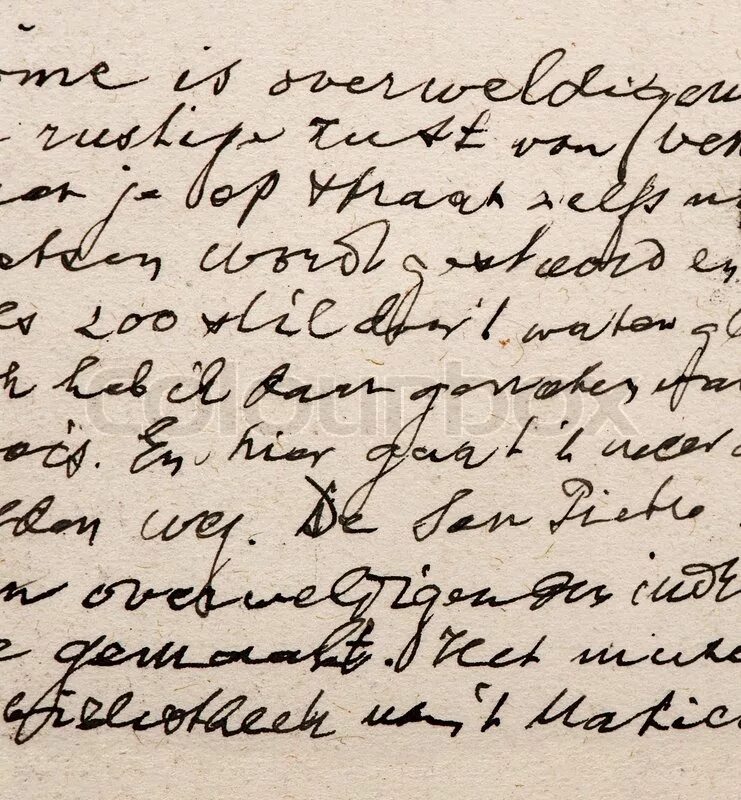 ome is overweldigen
rustige rust van Ven
je op straat zelfs
wordt gestoord en
ls 200 stil door 't water gl
k heb ik daar genoten
ois. En hier gaat 't weer
weg. De San Pietro
n overweldigenden indr
e gemaakt. Het muse
bibliotheek van 't Vatica
colourbox